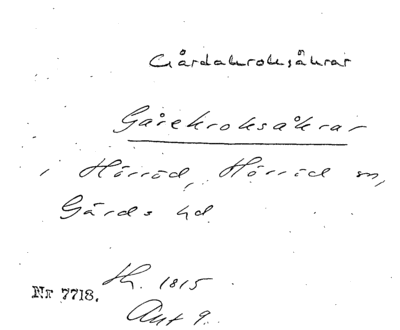 Gårdakroksåkrar
Gårekroksåkrar
i Hörröd, Hörröd sn,
Gärds hd
Th. 1815
Nr 7718.
Akt 9.